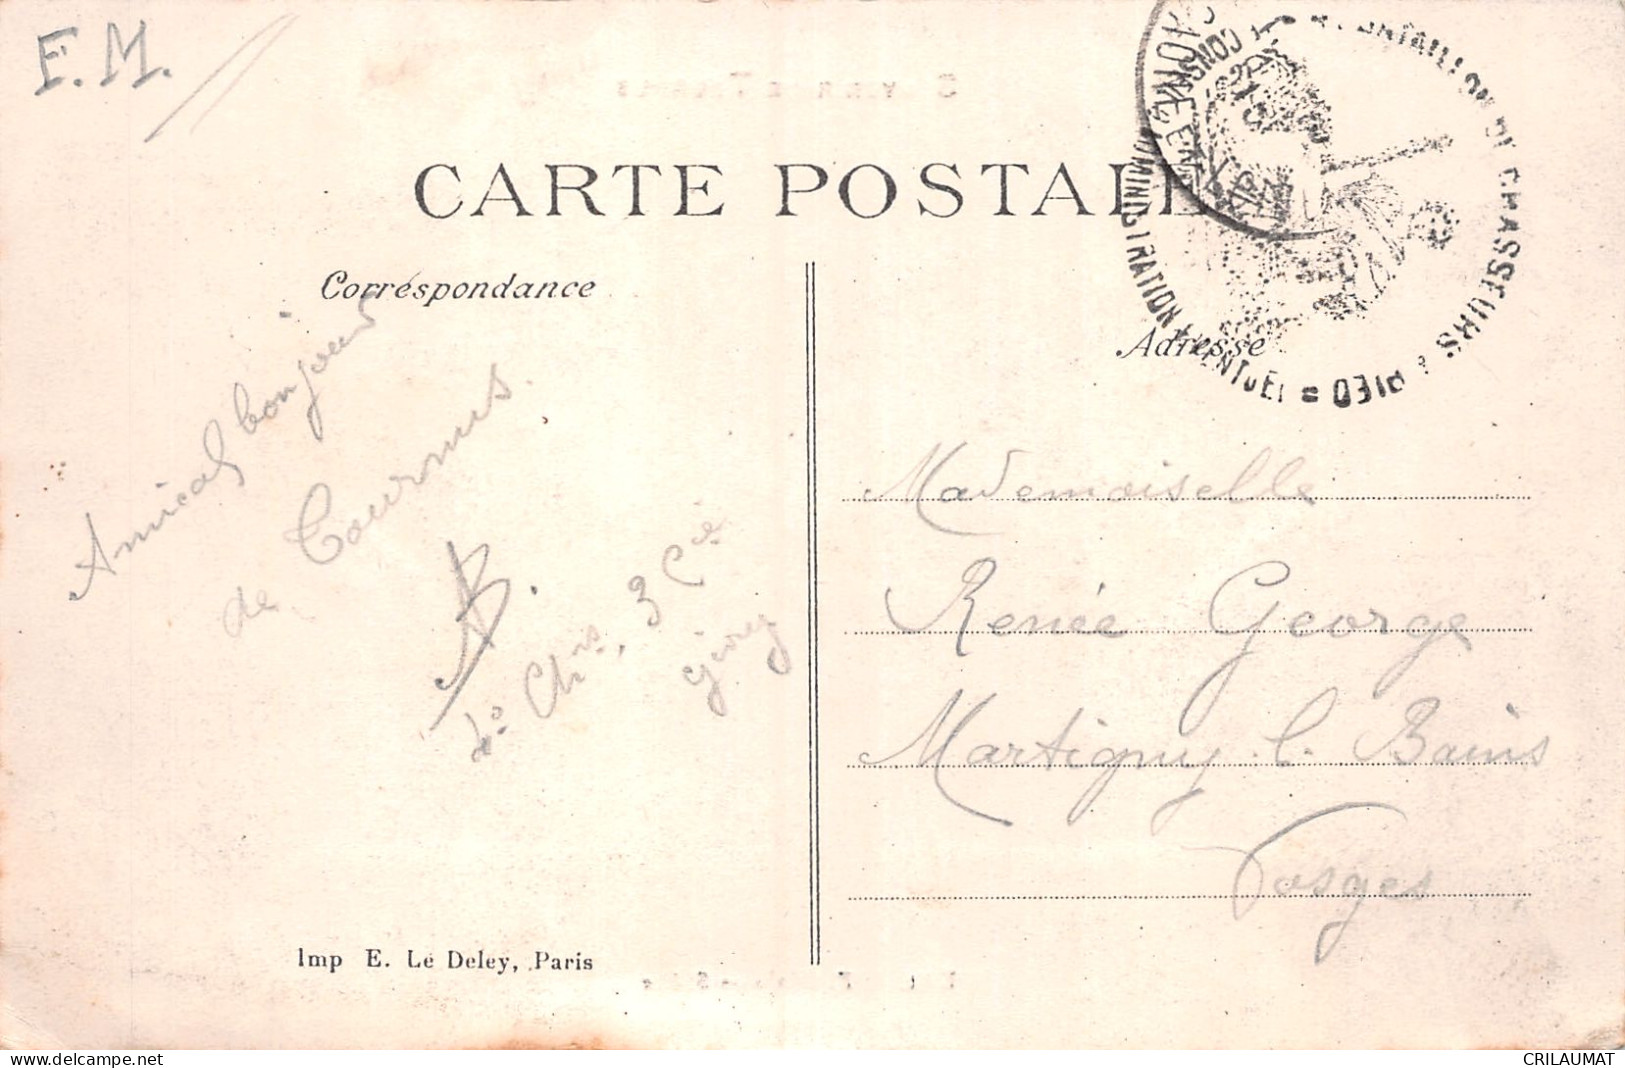 F.M.
CARTE POSTALE
Correspondance
Adresse
BATAILLON DE CHASSEURS A PIED = ADMINISTRATION
Amical bonjour
de Tournus.
AB.
Chrs, 3 Cie
Mademoiselle
Renée George
Martigny l. Bains
Vosges
Imp E. Le Deley, Paris
CRILAUMAT